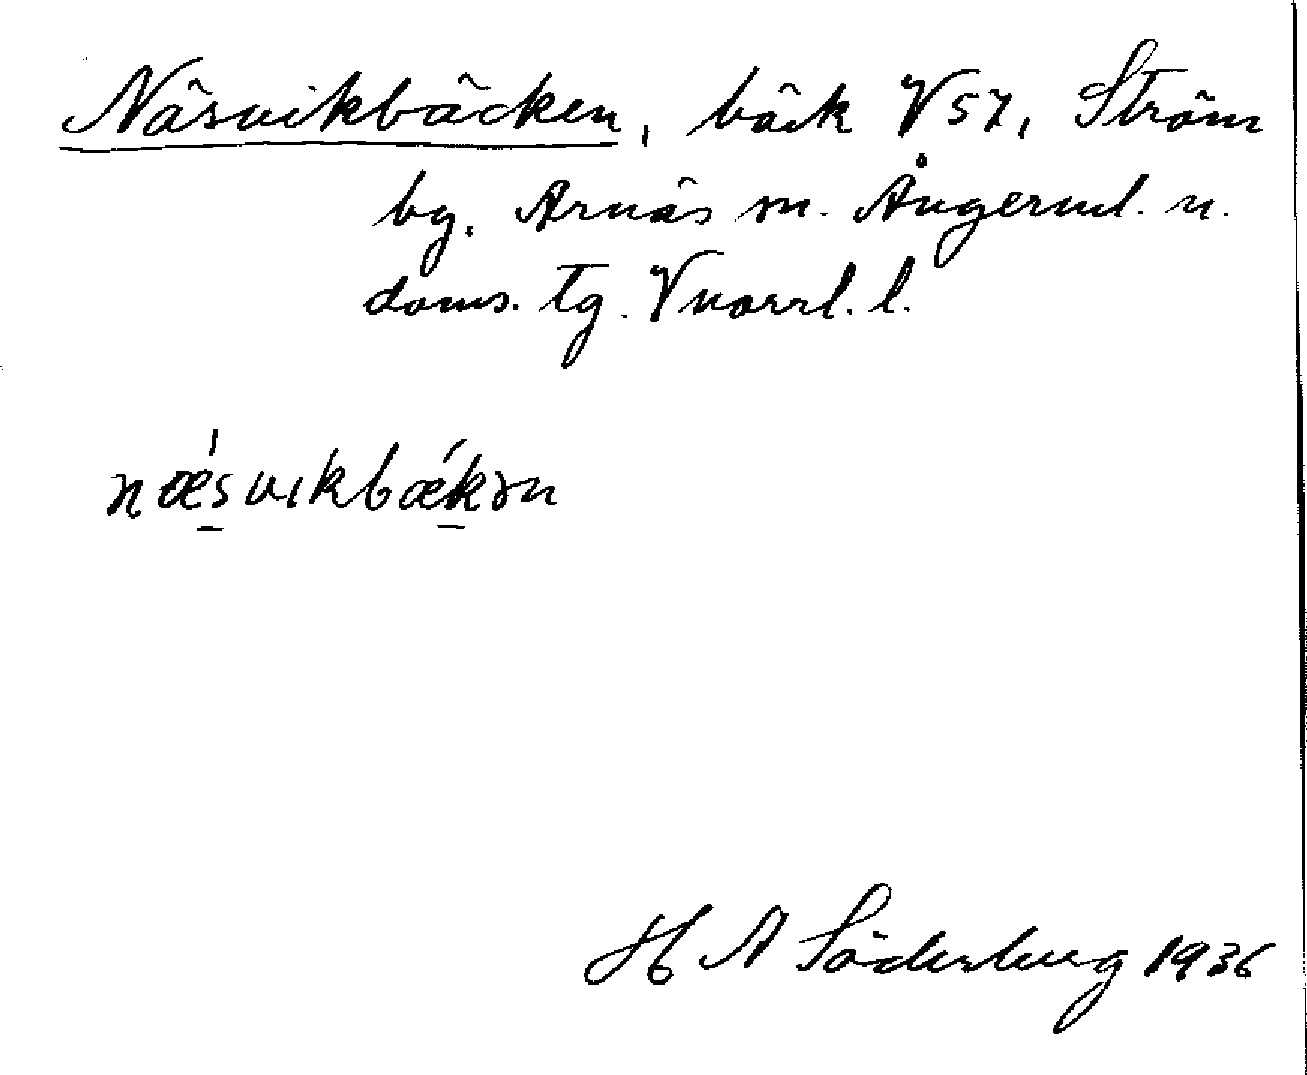 Näsvikbäcken, bäck V 57, Ström
bg. Arnäs sn. Ångerml. n.
doms. tg. Vnorrl. l.
næ̀svıkbækən
H A Söderberg 1936